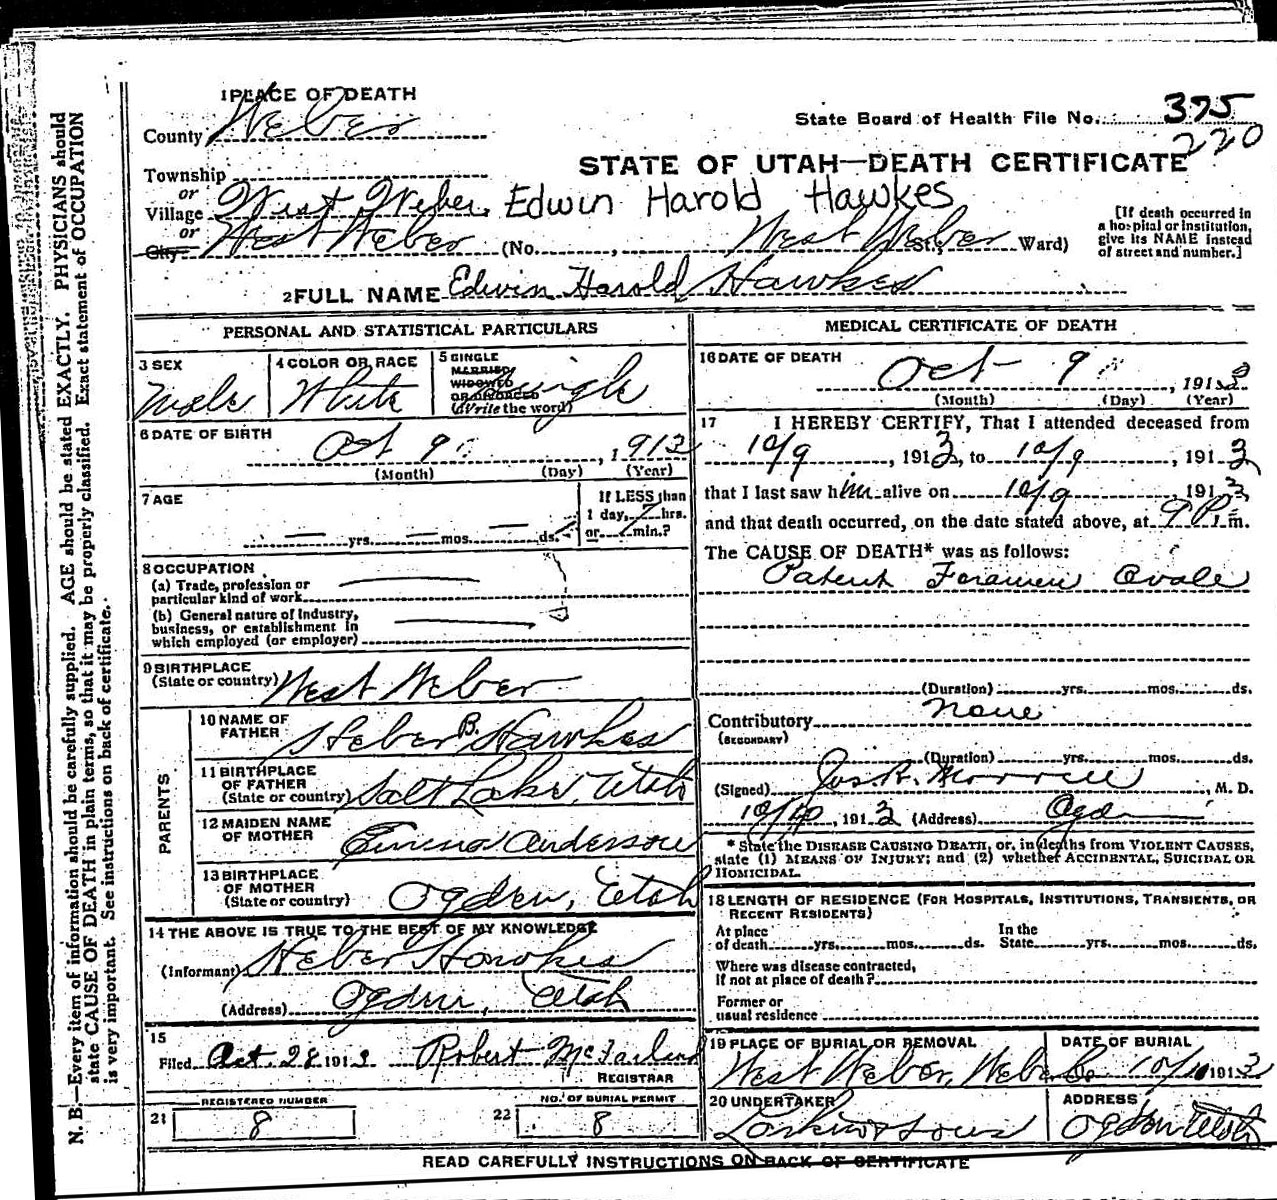 1 PLACE OF DEATH
County Weber
State Board of Health File No. 375
220
Township
STATE OF UTAH—DEATH CERTIFICATE
or
Village West Weber. Edwin Harold Hawkes
or
City West Weber (No. , West Weber St., Ward)
[If death occurred in a hospital or institution, give its NAME instead of street and number.]
2 FULL NAME Edwin Harold Hawkes
PERSONAL AND STATISTICAL PARTICULARS
3 SEX
Male
4 COLOR OR RACE
White
5 SINGLE
MARRIED
WIDOWED
OR DIVORCED
(Write the word)
Single
6 DATE OF BIRTH
Oct 9 , 1913
(Month) (Day) (Year)
7 AGE
yrs. mos. ds.
If LESS than
1 day, 7 hrs.
or min.?
8 OCCUPATION
(a) Trade, profession or
particular kind of work
(b) General nature of industry,
business, or establishment in
which employed (or employer)
9 BIRTHPLACE
(State or country) West Weber
PARENTS
10 NAME OF
FATHER Heber B. Hawkes
11 BIRTHPLACE
OF FATHER
(State or country) Salt Lake, Utah
12 MAIDEN NAME
OF MOTHER Emma Anderson
13 BIRTHPLACE
OF MOTHER
(State or country) Ogden, Utah
14 THE ABOVE IS TRUE TO THE BEST OF MY KNOWLEDGE
(Informant) Heber Hawkes
(Address) Ogden, Utah
15
Filed Oct. 28 1913 Robert McFarland
REGISTRAR
REGISTERED NUMBER
21 8
NO. OF BURIAL PERMIT
22 8
MEDICAL CERTIFICATE OF DEATH
16 DATE OF DEATH
Oct 9 , 1913
(Month) (Day) (Year)
17 I HEREBY CERTIFY, That I attended deceased from
10/9 , 1913, to 10/9 , 1913
that I last saw him alive on 10/9 1913
and that death occurred, on the date stated above, at 9 P. m.
The CAUSE OF DEATH* was as follows:
Patent Foramen Ovale
(Duration) yrs. mos. ds.
Contributory None
(SECONDARY)
(Duration) yrs. mos. ds.
(Signed) Jos. R. Morrell , M. D.
10/10, 1913 (Address) Ogden
* State the DISEASE CAUSING DEATH, or, in deaths from VIOLENT CAUSES,
state (1) MEANS OF INJURY; and (2) whether ACCIDENTAL, SUICIDAL OR
HOMICIDAL.
18 LENGTH OF RESIDENCE (FOR HOSPITALS, INSTITUTIONS, TRANSIENTS, OR
RECENT RESIDENTS)
At place
of death yrs. mos. ds.
In the
State yrs. mos. ds.
Where was disease contracted,
if not at place of death?
Former or
usual residence
19 PLACE OF BURIAL OR REMOVAL
West Weber, Weber Co.
DATE OF BURIAL
10/10 1913
20 UNDERTAKER
Larkin & Sons
ADDRESS
Ogden Utah
READ CAREFULLY INSTRUCTIONS ON BACK OF CERTIFICATE
N. B.—Every item of information should be carefully supplied. AGE should be stated EXACTLY. PHYSICIANS should
state CAUSE OF DEATH in plain terms, so that it may be properly classified. Exact statement of OCCUPATION
is very important. See instructions on back of certificate.